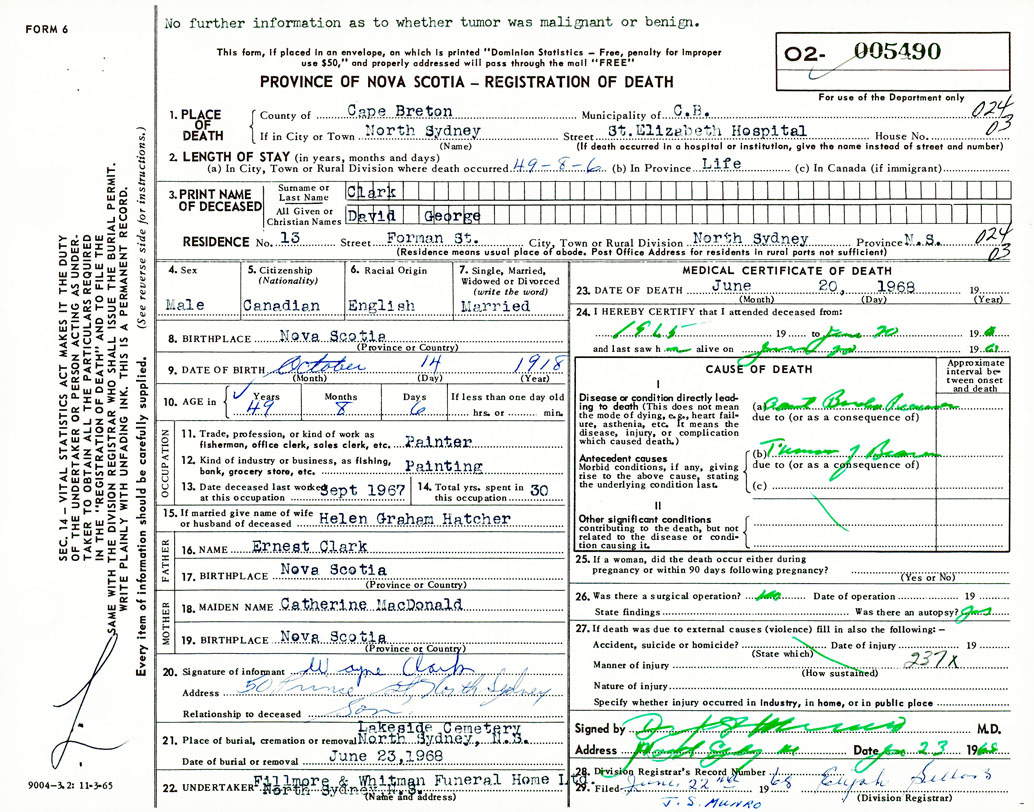 No further information as to whether tumor was malignant or benign.
FORM 6
This form, if placed in an envelope, on which is printed "Dominion Statistics – Free, penalty for improper
use $50," and properly addressed will pass through the mail "FREE"
PROVINCE OF NOVA SCOTIA – REGISTRATION OF DEATH
O2- 005490
For use of the Department only
1. PLACE OF DEATH
County of Cape Breton Municipality of C.B. 024
If in City or Town North Sydney Street St.Elizabeth Hospital House No. 03
(Name) (If death occurred in a hospital or institution, give the name instead of street and number)
2. LENGTH OF STAY (in years, months and days)
(a) In City, Town or Rural Division where death occurred 49-8-6 (b) In Province Life (c) In Canada (if immigrant)
3. PRINT NAME OF DECEASED
Surname or Last Name Clark
All Given or Christian Names David George
RESIDENCE No. 13 Street Forman St. City, Town or Rural Division North Sydney Province N.S. 024
(Residence means usual place of abode. Post Office Address for residents in rural parts not sufficient) 03
4. Sex
Male
5. Citizenship
(Nationality)
Canadian
6. Racial Origin
English
7. Single, Married,
Widowed or Divorced
(write the word)
Married
8. BIRTHPLACE Nova Scotia
(Province or Country)
9. DATE OF BIRTH October 14 1918
(Month) (Day) (Year)
10. AGE in Years Months Days If less than one day old
49 8 6 hrs. or min.
OCCUPATION
11. Trade, profession, or kind of work as
fisherman, office clerk, sales clerk, etc. Painter
12. Kind of industry or business, as fishing,
bank, grocery store, etc. Painting
13. Date deceased last worked
at this occupation Sept 1967
14. Total yrs. spent in
this occupation 30
15. If married give name of wife
or husband of deceased Helen Graham Hatcher
FATHER
16. NAME Ernest Clark
17. BIRTHPLACE Nova Scotia
(Province or Country)
MOTHER
18. MAIDEN NAME Catherine MacDonald
19. BIRTHPLACE Nova Scotia
(Province or Country)
20. Signature of informant Wayne Clark
Address 50 Prince St North Sydney
Relationship to deceased Son
Lakeside Cemetery
21. Place of burial, cremation or removal North Sydney, N.S.
Date of burial or removal June 23,1968
Fillmore & Whitman Funeral Home Ltd.
22. UNDERTAKER North Sydney N.S.
(Name and address)
MEDICAL CERTIFICATE OF DEATH
23. DATE OF DEATH June 20, 1968 19
(Month) (Day) (Year)
24. I HEREBY CERTIFY that I attended deceased from:
1965 19 to June 20 19
and last saw h alive on June 20 19
CAUSE OF DEATH
Approximate
interval be-
tween onset
and death
I
Disease or condition directly lead-
ing to death (This does not
mean the mode of dying, e.g., heart fail-
ure, asthenia, etc. It means the
disease, injury, or complication
which caused death.)
(a)
due to (or as a consequence of)
Antecedent causes
Morbid conditions, if any, giving
rise to the above cause, stating
the underlying condition last.
(b)
due to (or as a consequence of)
(c)
II
Other significant conditions
contributing to the death, but not
related to the disease or condi-
tion causing it.
25. If a woman, did the death occur either during
pregnancy or within 90 days following pregnancy?
(Yes or No)
26. Was there a surgical operation? Date of operation 19
State findings Was there an autopsy?
27. If death was due to external causes (violence) fill in also the following: –
Accident, suicide or homicide? Date of injury 19
(State which)
Manner of injury 237X
(How sustained)
Nature of injury
Specify whether injury occurred in Industry, in home, or in public place
Signed by Dr M.D.
Address Date June 23 1968
28. Division Registrar's Record Number
29. Filed June 22nd 1968 Elijah
(Division Registrar)
J. S. MUNRO
SEC. 14 – VITAL STATISTICS ACT MAKES IT THE DUTY
OF THE UNDERTAKER OR PERSON ACTING AS UNDER-
TAKER TO OBTAIN ALL THE PARTICULARS REQUIRED
IN THE "REGISTRATION OF DEATH" AND TO FILE THE
SAME WITH THE DIVISION REGISTRAR WHO SHALL ISSUE THE BURIAL PERMIT.
WRITE PLAINLY WITH UNFADING INK. THIS IS A PERMANENT RECORD.
Every item of information should be carefully supplied. (See reverse side for instructions.)
9004-3.2: 11-3-65